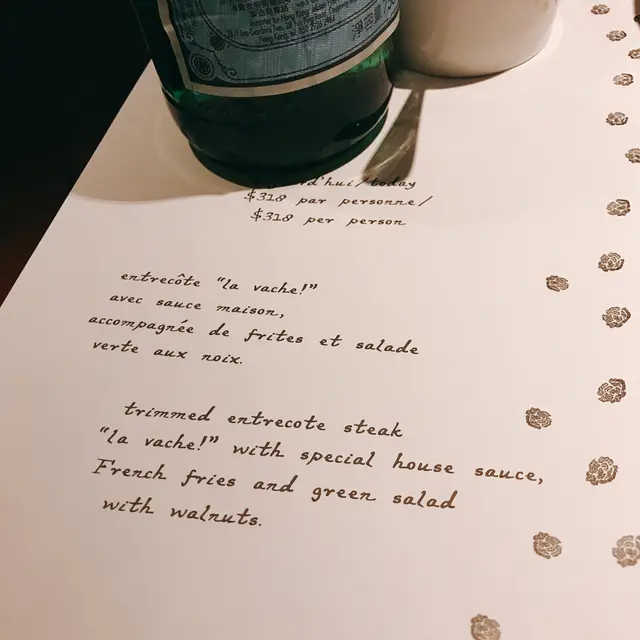 d'hui/today
$318 par personne/
$318 per person
entrecôte "la vache!"
avec sauce maison,
accompagnée de frites et salade
verte aux noix.
trimmed entrecote steak
"la vache!" with special house sauce,
French fries and green salad
with walnuts.